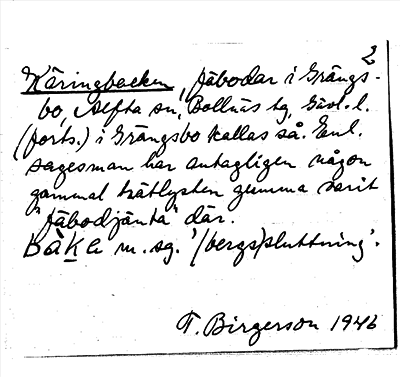 2
Käringbacken, fäbodar i Grängs-
bo, Alfta sn, Bollnäs tg, Gävl. l.
(forts.) i Grängsbo kallas så. Enl.
sagesman har antagligen någon
gammal trätlysten gumma varit
"fäbodjänta" där.
bàke m. sg. '(bergs)sluttning'.
T. Birgerson 1946